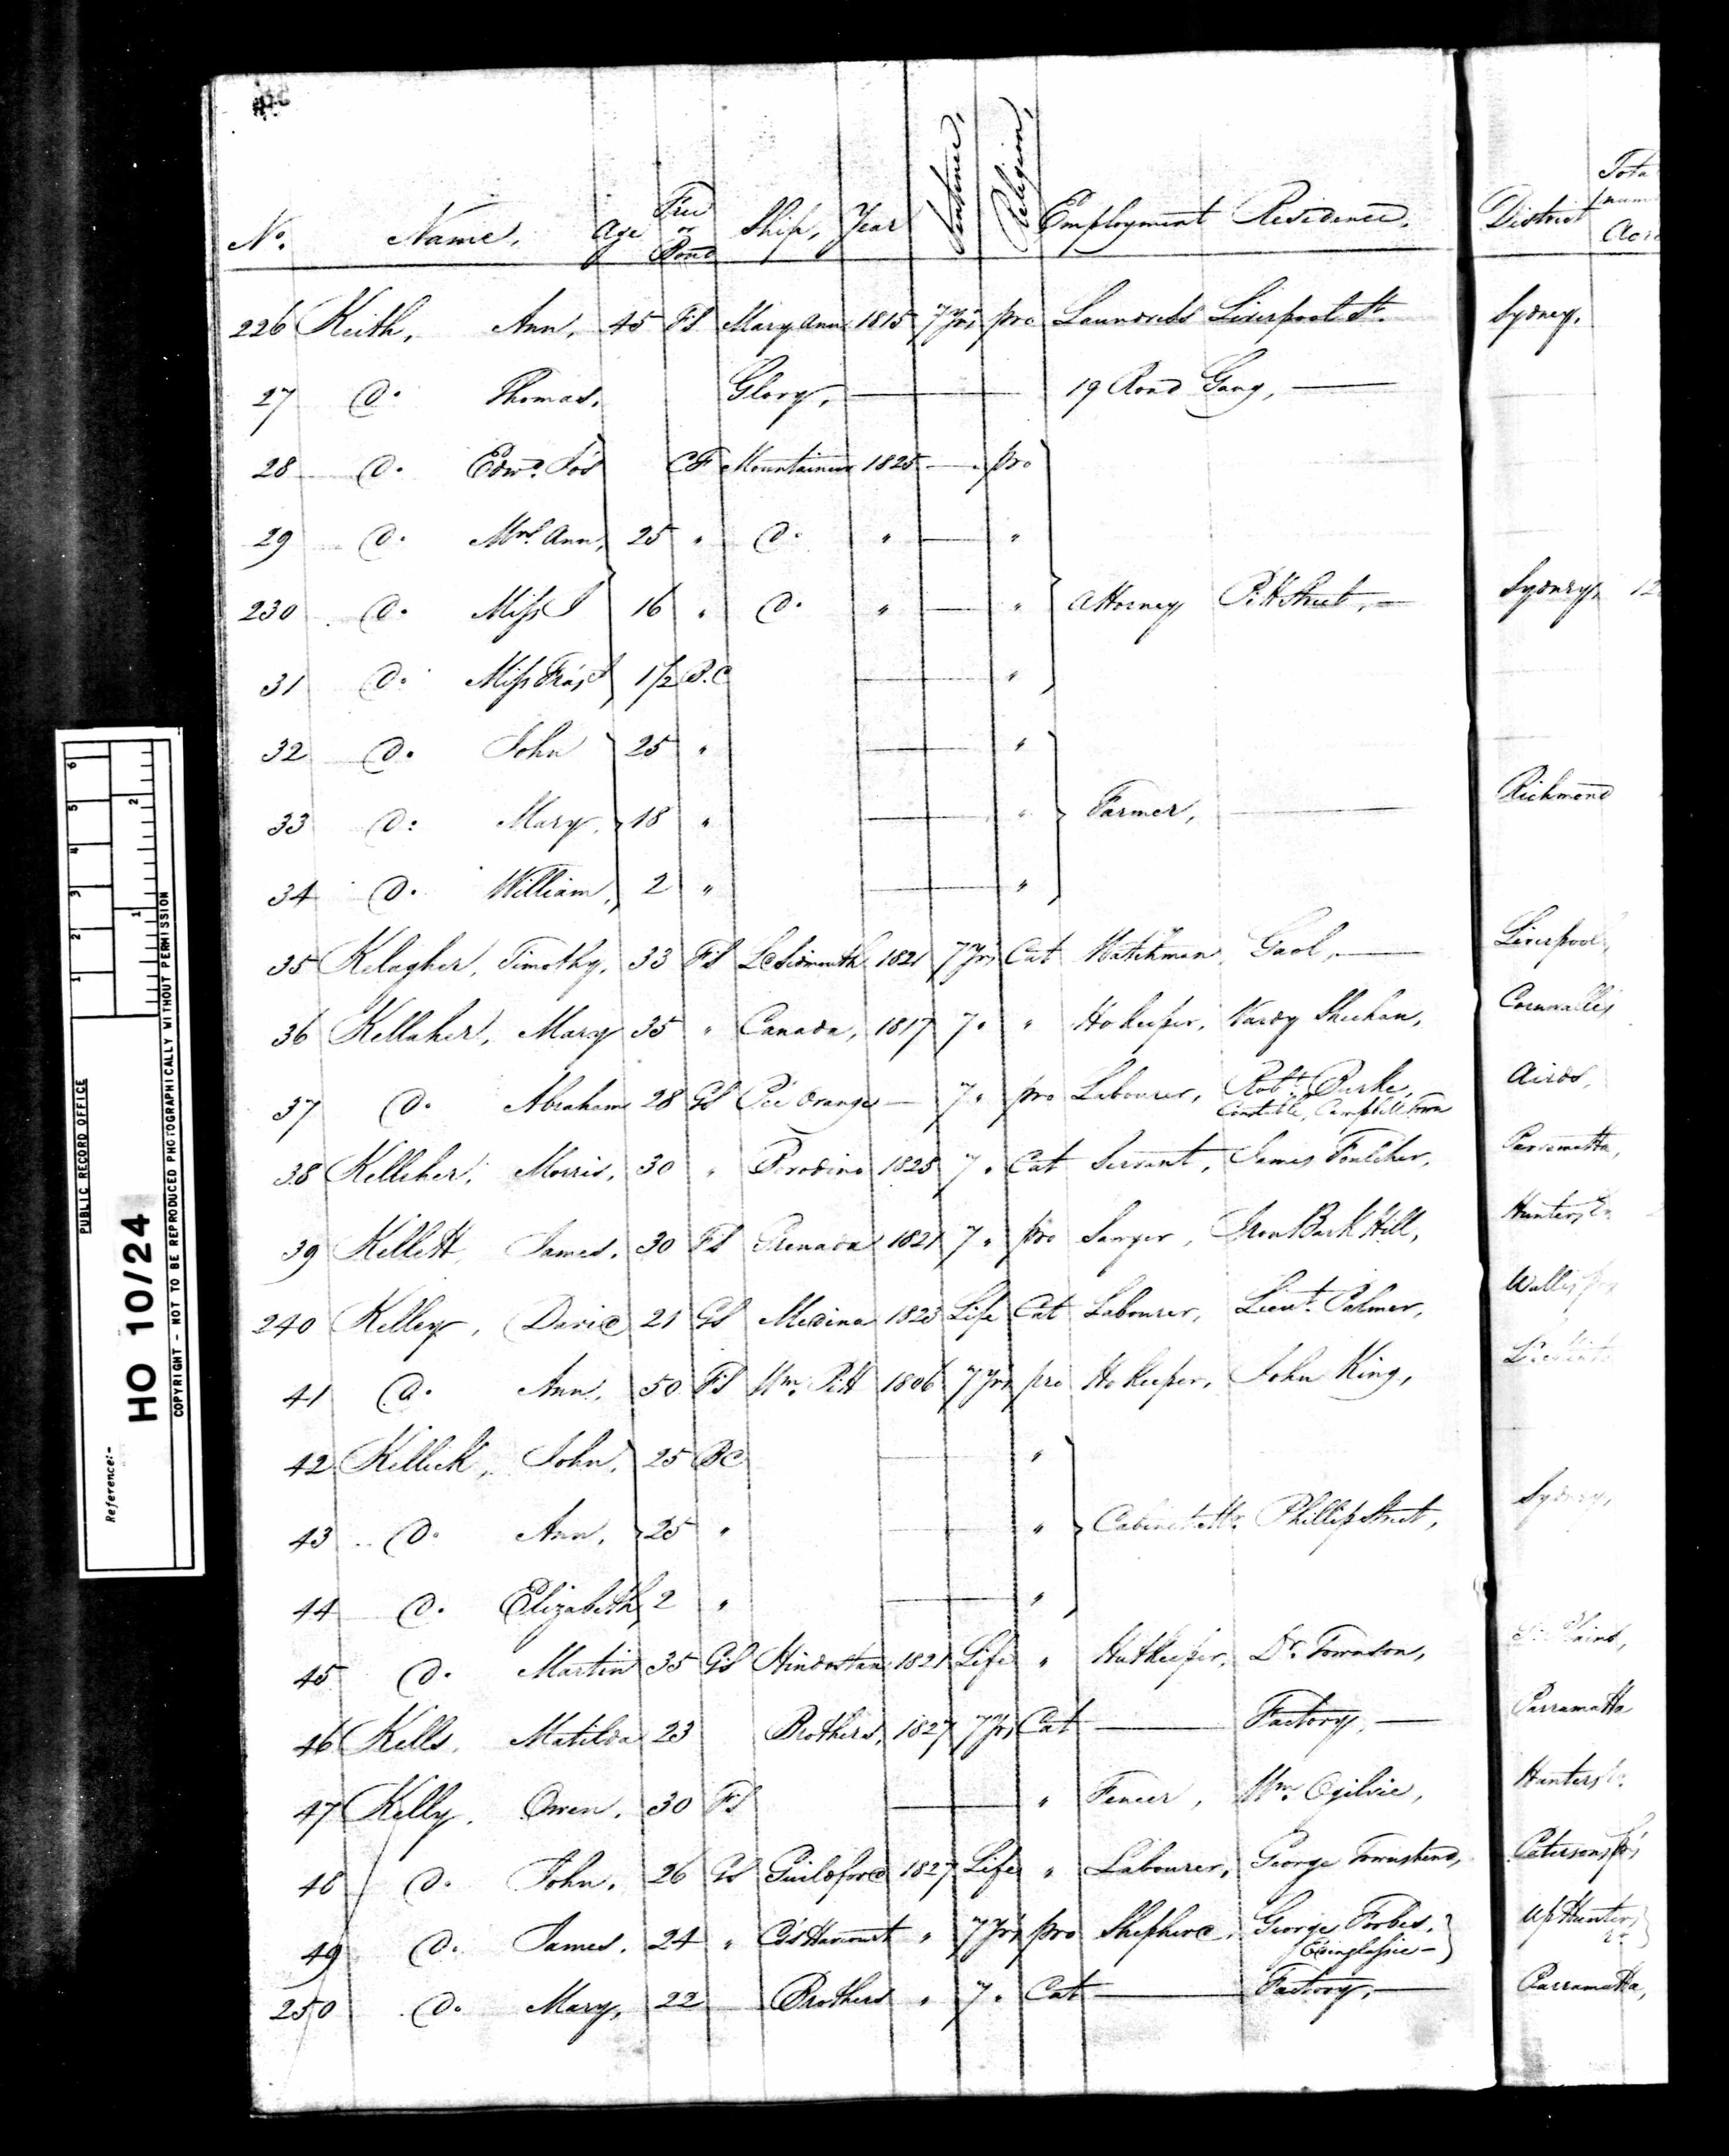 No. Name. Age Free or Bond Ship, Year Sentence, Religion, Employment Residence. District Tota num Acre
226 Keith, Ann, 45 FS Mary Ann 1815 7 Yrs pro Laundress Liverpool St. Sydney.
27 Do. Thomas, Glory, — 19 Road Gang, —
28 Do. Edwd. Jos CF Mountaineer 1825 — pro
29 Do. Mrs. Ann, 25 " Do. " — "
230 Do. Miss J 16 " Do. " — " Attorney Pitt Street, — Sydney, 12
31 Do. Miss 1½ B.C — "
32 Do. John 25 " — "
33 Do: Mary, 18 " — " Farmer, — Richmond
34 Do. William, 2 " — "
35 Kelagher, Timothy, 33 FS Ld Sidmouth 1821 7 Yrs Cat Watchman, Gaol, — Liverpool,
36 Kellaher, Mary 35 " Canada, 1817 7 " " Ho keeper, Hardy Sheehan, Cornwallis
37 Do. Abraham 28 GS Pce Orange — 7 " pro Labourer, Robt. Burke, Constable, Campbell Town Airds,
38 Kelleher, Morris, 30 " Borodino 1828 7 " Cat Servant, James Foulcher, Parramatta,
39 Kellett, James, 30 FS Grenada 1821 7 " pro Sawyer, Iron Bark Hill, Hunters Rr.
240 Kelley, David 21 GS Medina 1823 Life Cat Labourer, Lieut. Palmer, Wallis
41 Do. Ann, 50 FS Wm. Pitt 1806 7 Yrs pro Ho keeper, John King,
42 Kellick, John, 25 BC — "
43 Do. Ann, 25 " — " Cabinet Mr. Phillip Street, Sydney,
44 Do. Elizabeth, 2 " — "
45 Do. Martin 35 GS Hindostan 1821 Life " Hutkeeper, Dr. Townson,
46 Kells, Matilda 23 Brothers, 1827 7 Yrs Cat — Factory, — Parramatta
47 Kelly, Owen, 30 FS — " Fencer, Wm. Ogilvie, Hunters Rr.
48 Do. John, 26 GS Guildford 1827 Life " Labourer, George Townshend, Patersons Ps
49 Do. James, 24 " Cs Harcourt " 7 Yrs pro Shepherd, George Forbes, Edinglassie — Up Hunter, Rr.
250 Do. Mary, 22 Brothers " 7 " Cat — Factory, — Parramatta,
PUBLIC RECORD OFFICE
Reference:-
HO 10/24
COPYRIGHT - NOT TO BE REPRODUCED PHOTOGRAPHICALLY WITHOUT PERMISSION
1 2 3 4 5 6
1 2